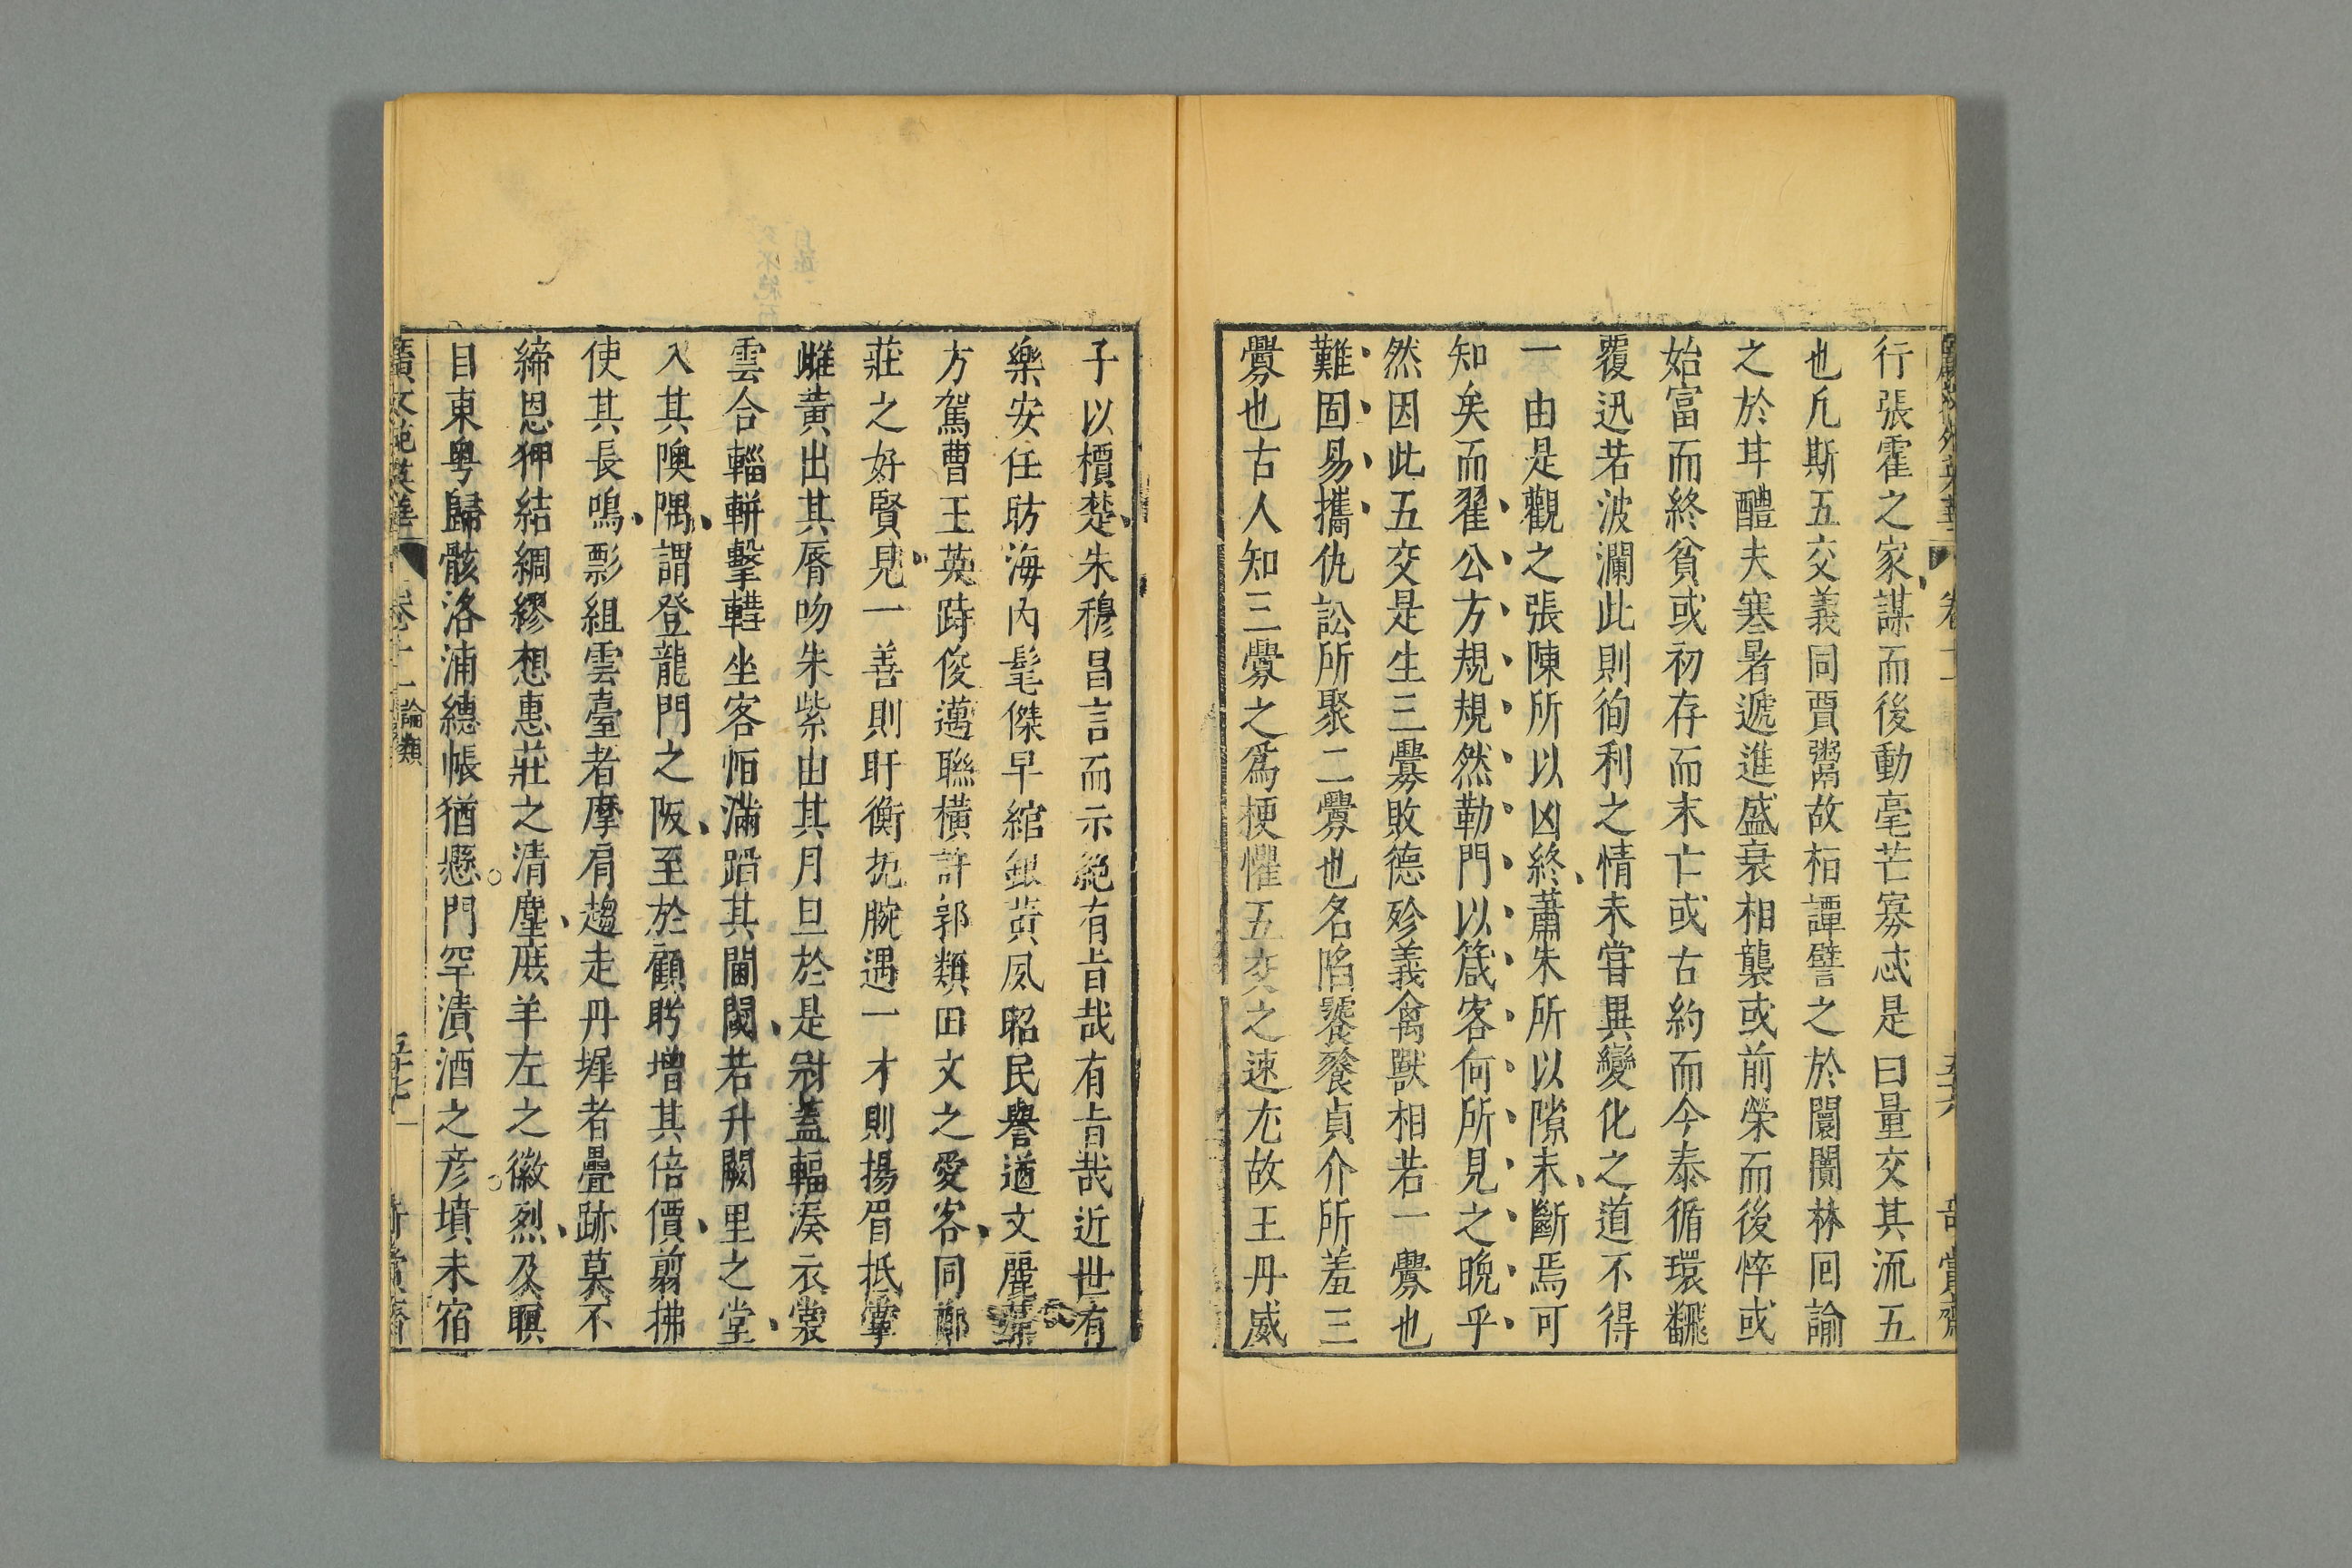 行張霍之家謀而後動毫芒寡忒是曰量交其流五
也凡斯五交義同賈鬻故桓譚譬之於闤闠林回論
之於甘醴夫寒暑遞進盛衰相襲或前榮而後悴或
始富而終貧或初存而末亡或古約而今泰循環飜
覆迅若波瀾此則徇利之情未嘗異變化之道不得
一由是觀之張陳所以凶終蕭朱所以隙末斷焉可
知矣而翟公方規規然勒門以箴客何所見之晚乎
然因此五交是生三釁敗德殄義禽獸相若一釁也
難固易攜仇訟所聚二釁也名陷饕餮貞介所羞三
釁也古人知三釁之爲梗懼五交之速尤故王丹威
子以檟楚朱穆昌言而示絶有旨哉有旨哉近世有
樂安任昉海内髦傑早綰銀黃夙昭民譽遒文麗藻
方駕曹王英跱俊邁聯橫許郭類田文之愛客同鄭
莊之好賢見一善則盱衡扼腕遇一才則揚眉抵掌
雌黃出其脣吻朱紫由其月旦於是冠蓋輻湊衣裳
雲合輜軿擊轊坐客恒滿蹈其閫閾若升闕里之堂
入其隩隅謂登龍門之阪至於顧盻增其倍價翦拂
使其長鳴影組雲臺者摩肩趨走丹墀者疊跡莫不
締恩狎結綢繆想惠莊之清塵庶羊左之徽烈及瞑
目東粵歸骸洛浦繐帳猶懸門罕漬酒之彦墳未宿
廣文苑英華 卷十一 論類 五七